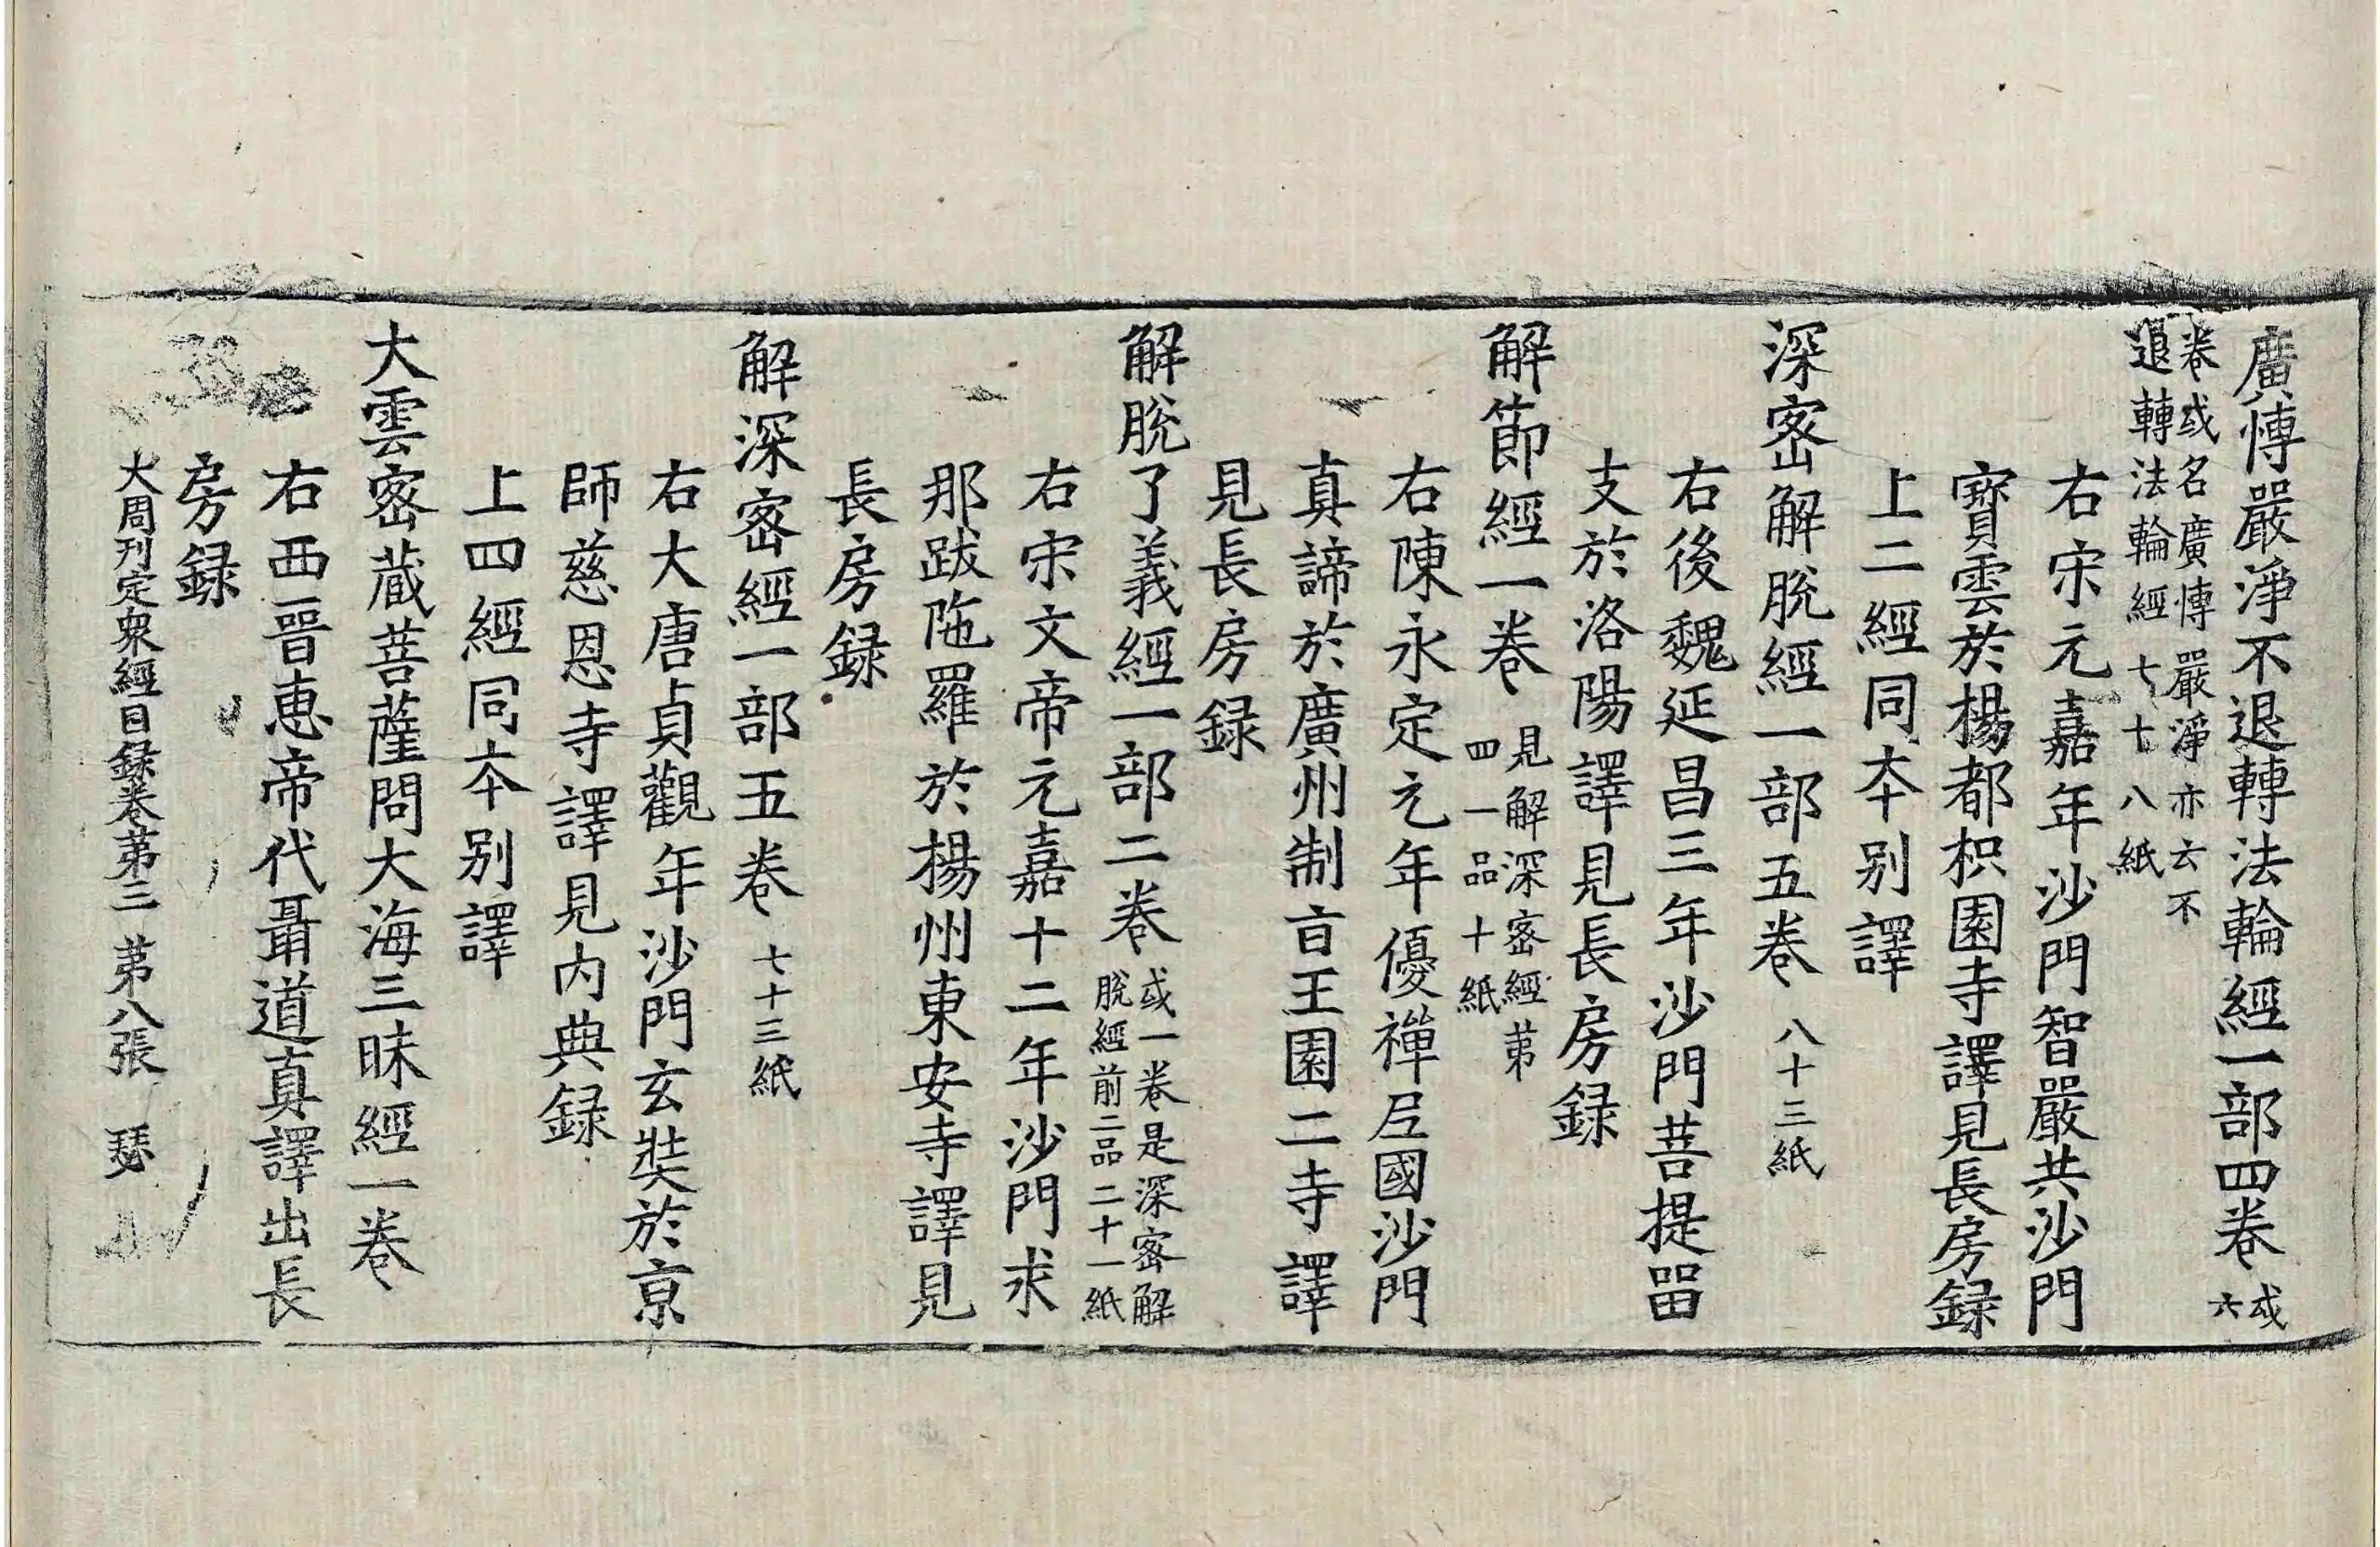 廣愽嚴淨不退轉法輪經一部四卷或六
卷或名廣愽嚴淨亦云不
退轉法輪經七十八紙
右宋元嘉年沙門智嚴共沙門
寶雲於楊都枳園寺譯見長房録
上二經同夲别譯
深宻解脫經一部五卷八十三紙
右後魏延昌三年沙門菩提㽞
支於洛陽譯見長房録
解節經一卷見解深宻經苐
四一品十紙
右陳永定元年優禪𡰱國沙門
真諦於廣州制㫖王園二寺譯
見長房録
解脫了義經一部二卷或一卷是深宻解
脫經前二品二十一紙
右宋文帝元嘉十二年沙門求
那跋陁羅於楊州東安寺譯見
長房録
解深宻經一部五卷七十三紙
右大唐貞觀年沙門玄奘於京
師慈恩寺譯見内典録
上四經同夲别譯
大雲宻蔵菩薩問大海三昧經一卷
右西晉恵帝代聶道真譯出長
房録
大周刊定衆經目録卷苐三 苐八張 瑟